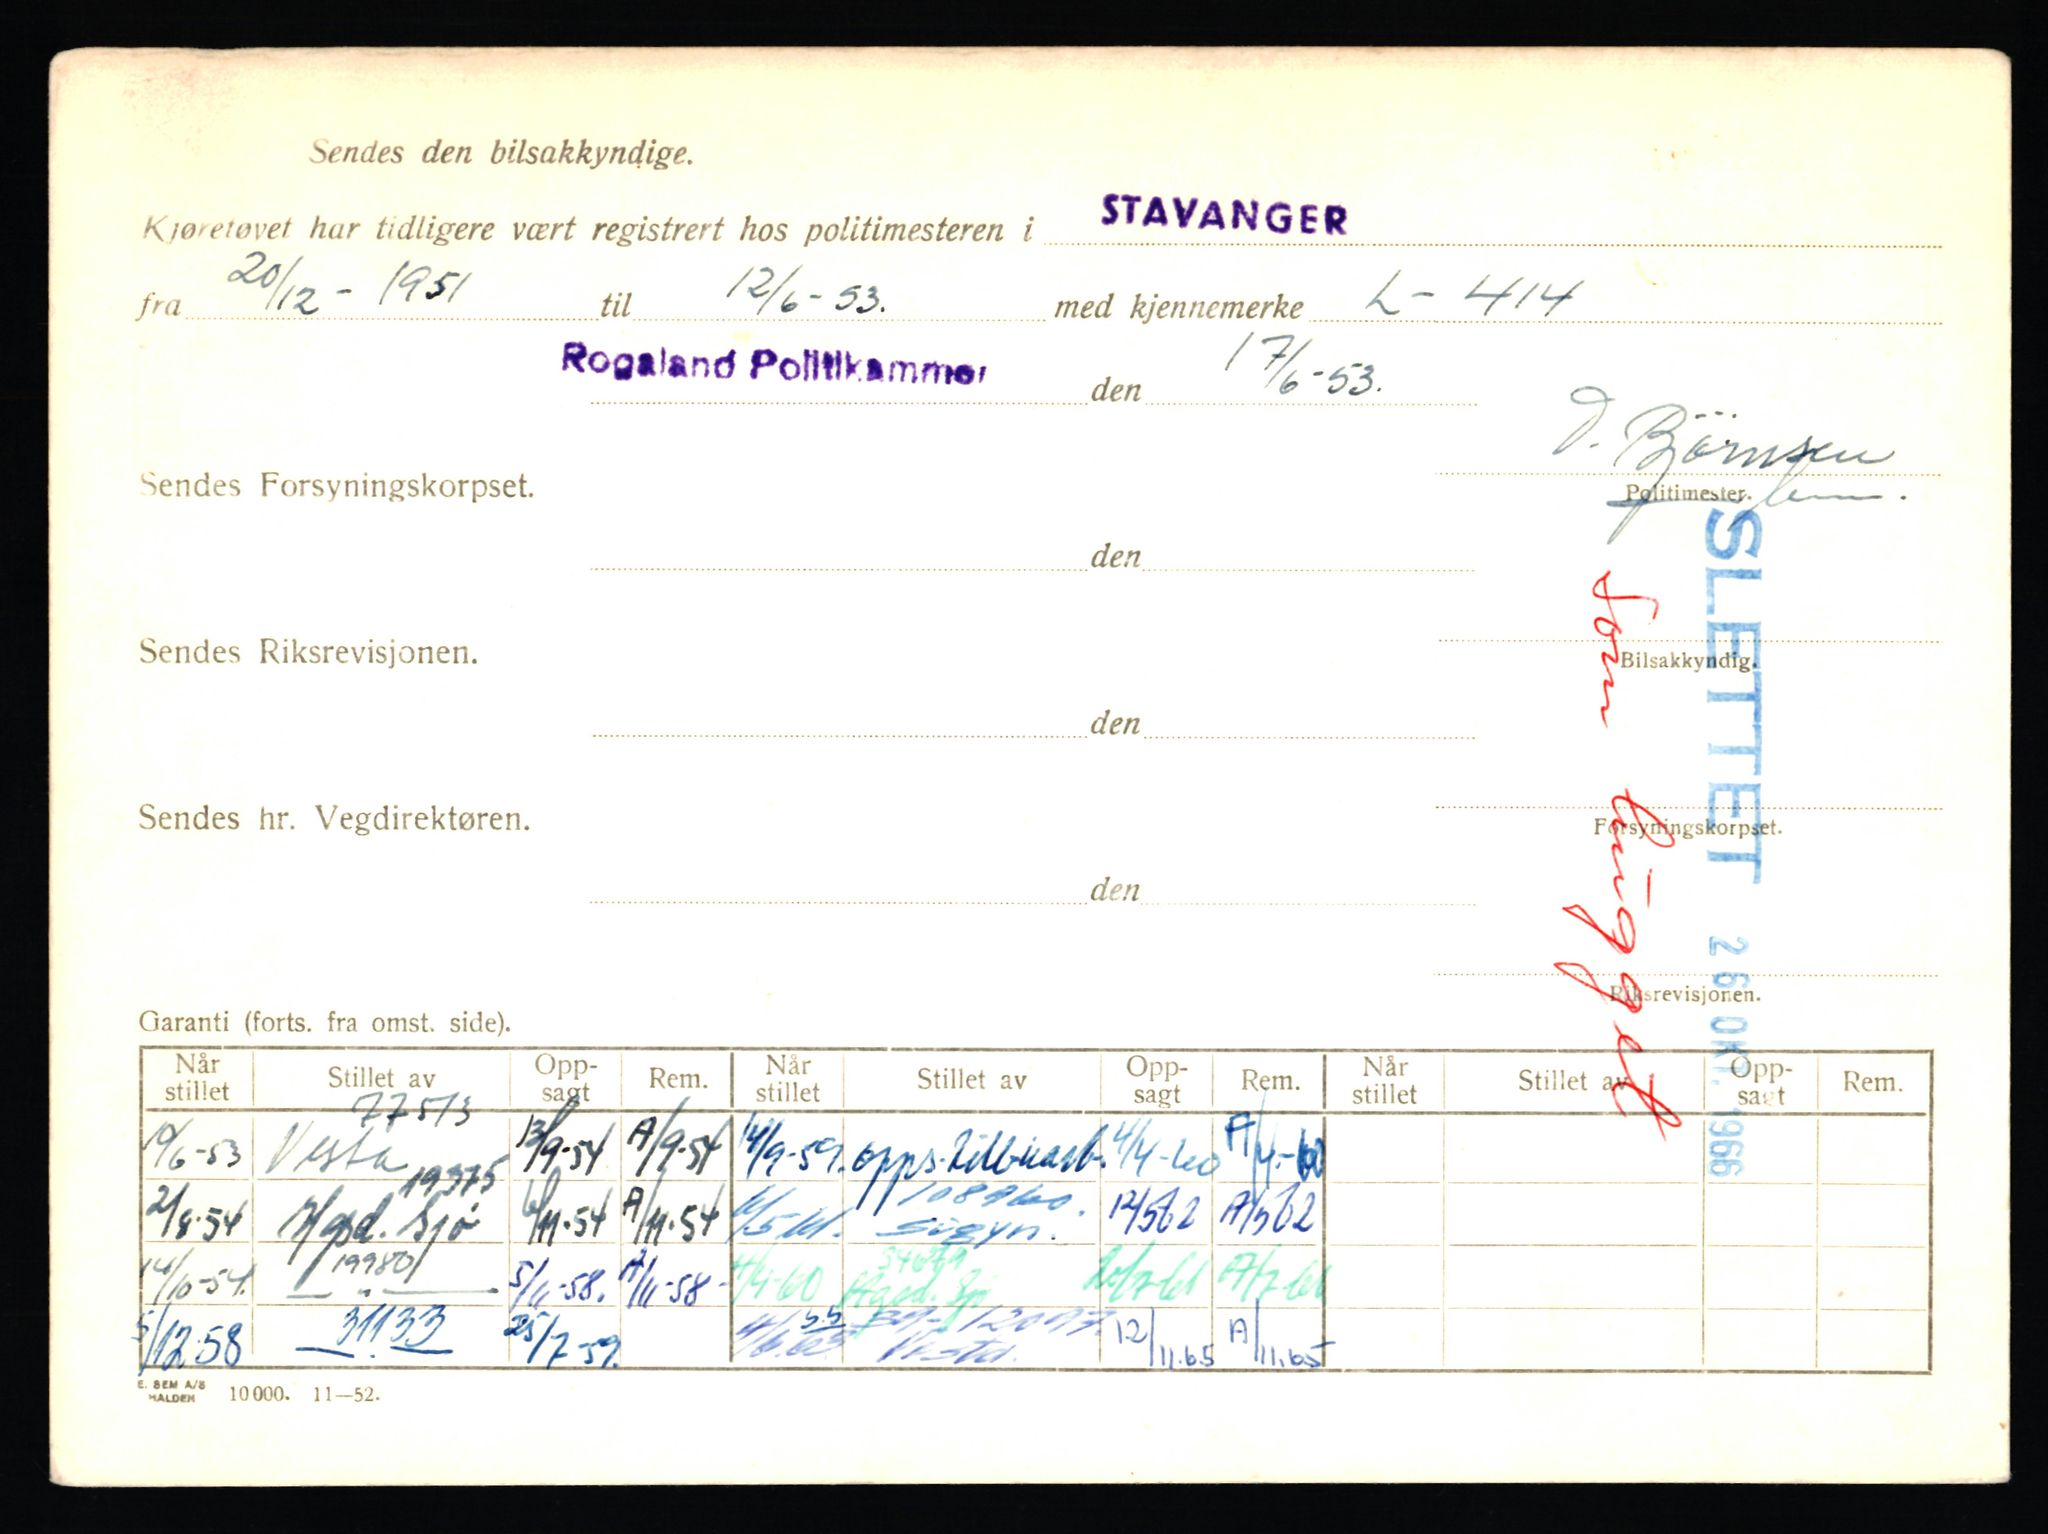 Sendes den bilsakkyndige.
Kjøretøyet har tidligere vært registrert hos politimesteren i STAVANGER
fra 20/12 - 1951 til 12/6 - 53. med kjennemerke L - 414
Rogaland Politikammer den 17/6 - 53.
D. Björnsen
Sendes Forsyningskorpset.
Politimester.
den
Sendes Riksrevisjonen.
Bilsakkyndig.
den
Sendes hr. Vegdirektøren.
Forsyningskorpset.
den
Riksrevisjonen.
SLETTET 26 OKT. 1966
Som hugget
Garanti (forts. fra omst. side).
Når stillet Stillet av Opp-sagt Rem. Når stillet Stillet av Opp-sagt Rem. Når stillet Stillet av Opp-sagt Rem.
77513
/6-53 Vesta 13/9-54 A/9-54 14/9-59. 4/4-60 A/4-60
19375 108960.
2/8-54 Sjö 6/11-54 A/11-54 Sigyn. 12/5 62 A/5 62
19980
14/10-54. 5/11-58. A/11-58- 4/4-60 20/7-61 A/7-61
5/12-58 31133 25/7-59. Vesta. 12/11.65 A/11.65
E. SEM A/S
HALDEN 10 000. 11—52.